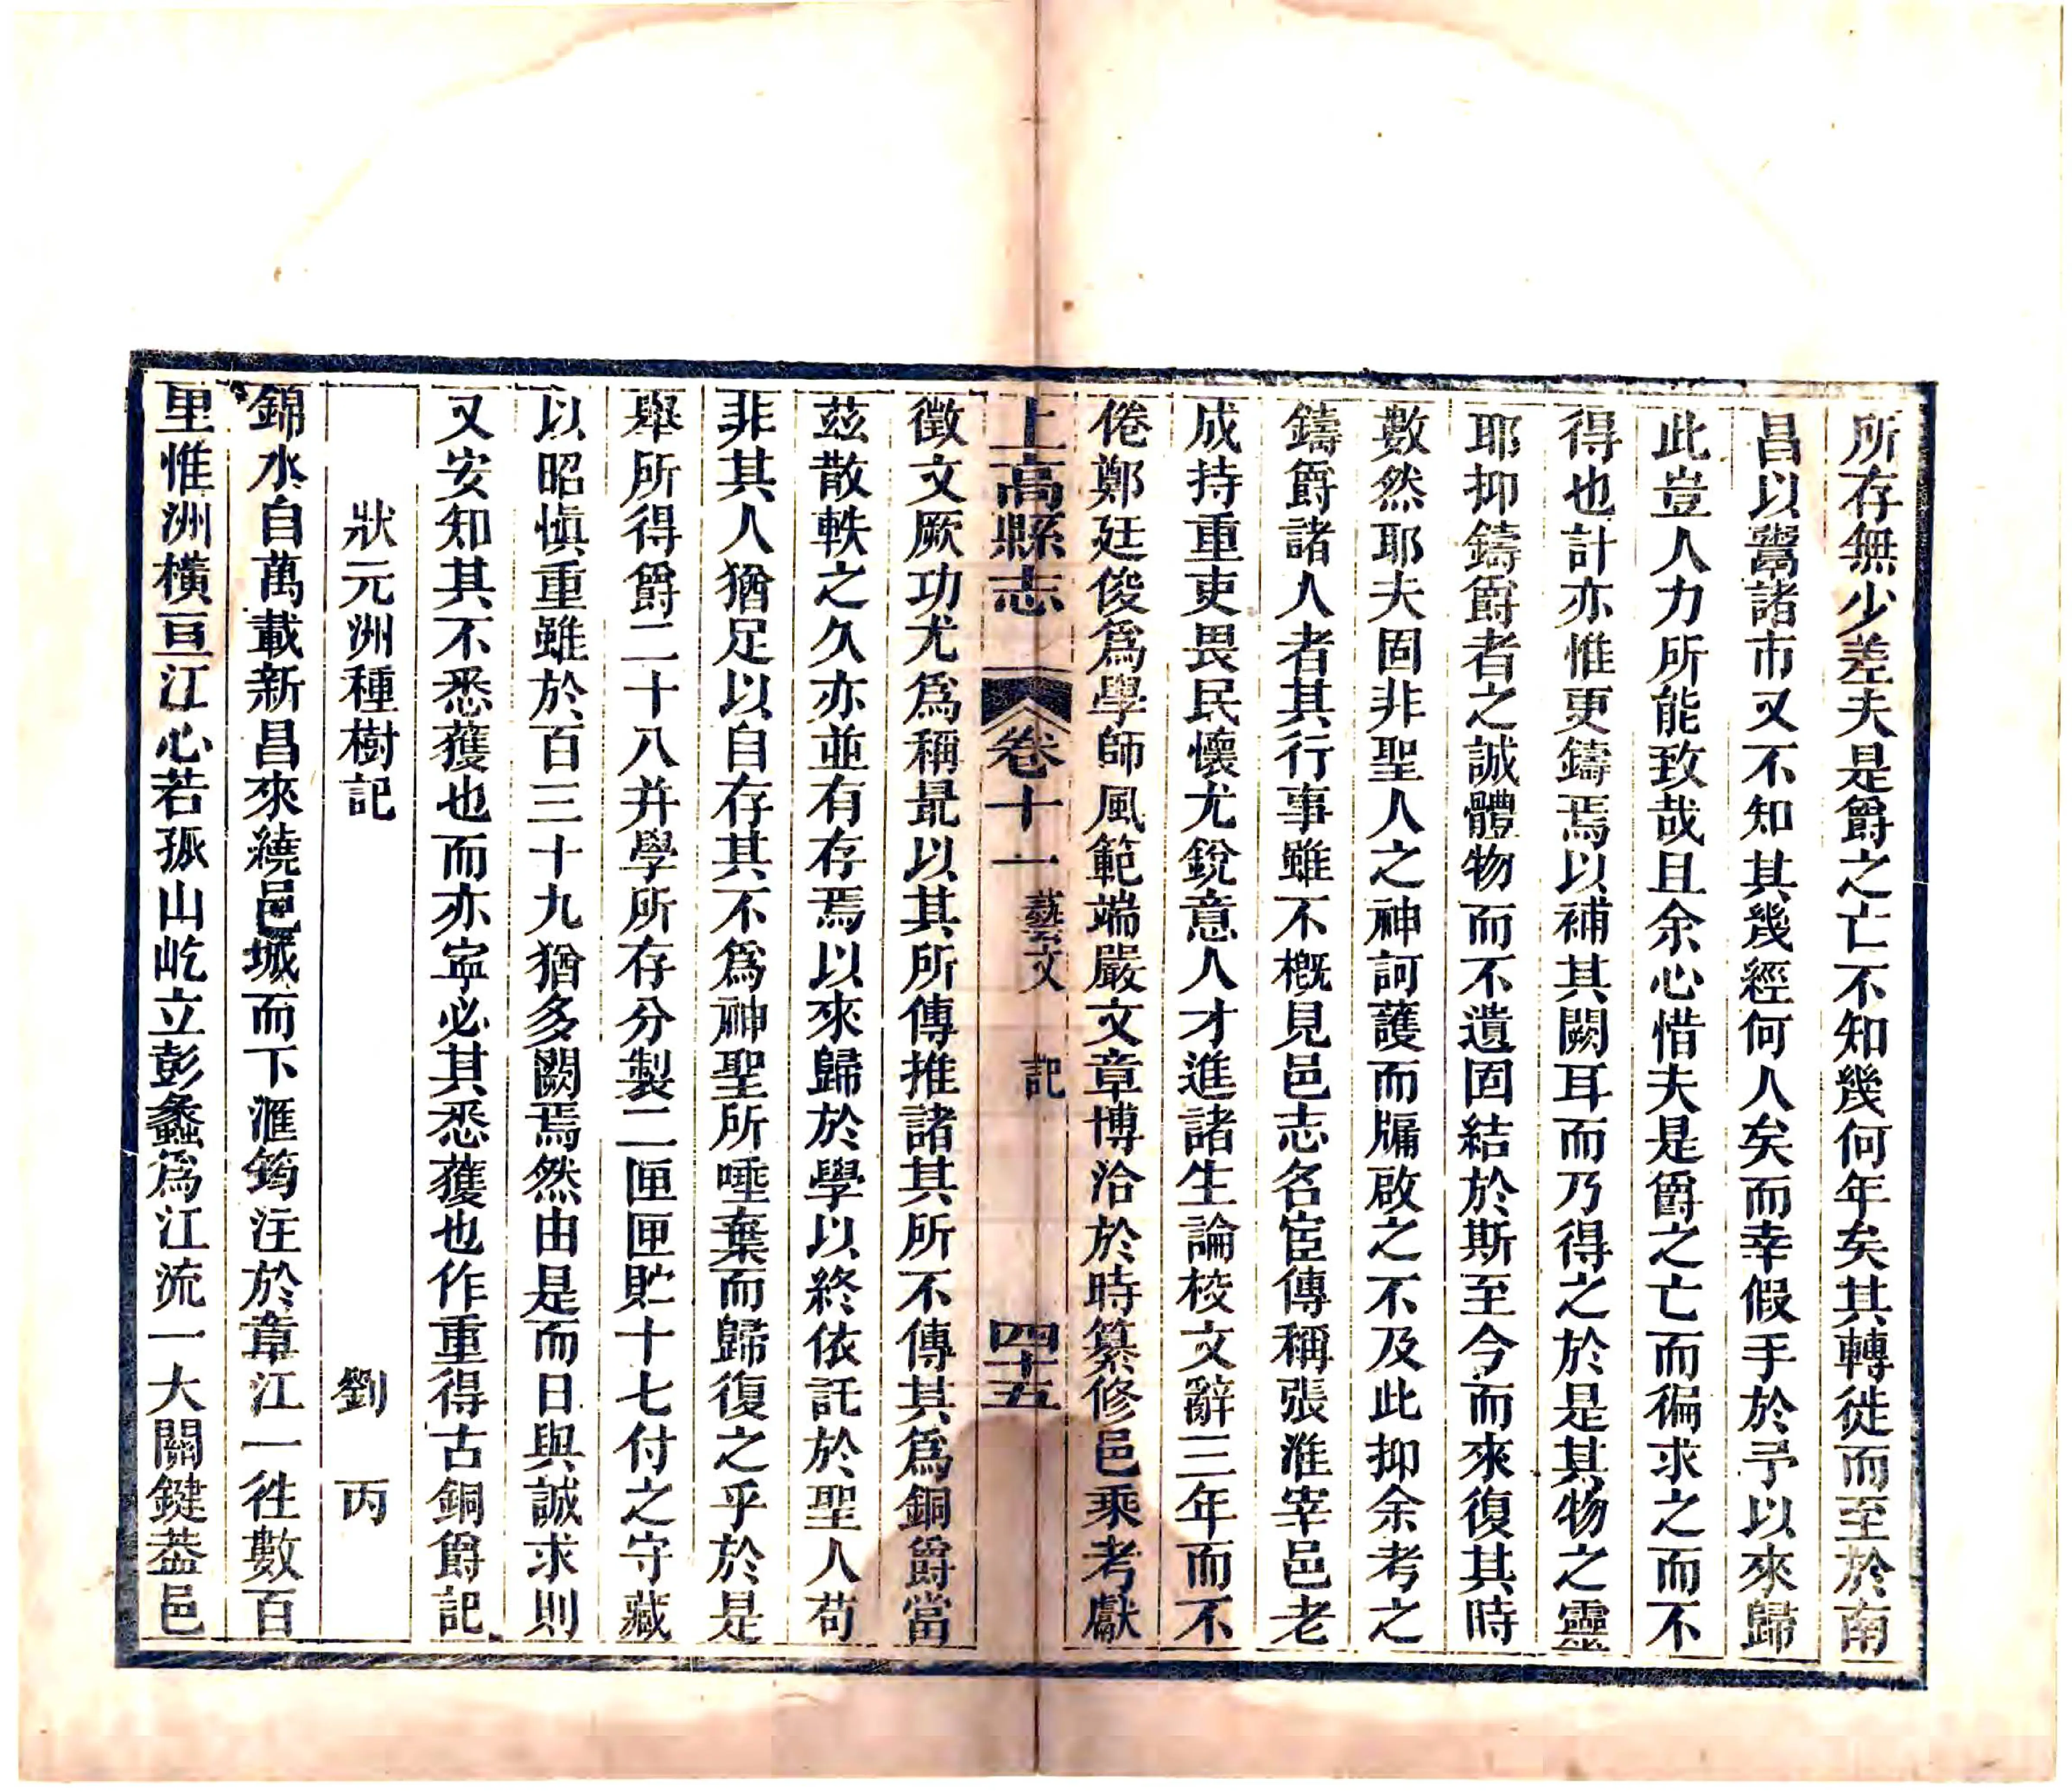 所存無少差夫是爵之亡不知幾何年矣其轉徙而至於南
昌以鬻諸市又不知其幾經何人矣而幸假手於予以來歸
此豈人力所能致哉且余心惜夫是爵之亡而徧求之而不
得也計亦惟更鑄焉以補其闕耳而乃得之於是其物之靈
耶抑鑄爵者之誠體物而不遺固結於斯至今而來復其時
數然耶夫固非聖人之神訶護而牖啟之不及此抑余考之
鑄爵諸人者其行事雖不槪見邑志名宦傳稱張淮宰邑老
成持重吏畏民懷尤銳意人才進諸生論校文辭三年而不
倦鄭廷俊爲學師風範端嚴文章博洽於時纂修邑乘考獻
上高縣志 卷十一 藝文 記 四十五
徵文厥功尤爲稱最以其所傳推諸其所不傳其爲銅爵當
茲散軼之久亦並有存焉以來歸於學以終依託於聖人苟
非其人猶足以自存其不爲神聖所唾棄而歸復之乎於是
舉所得爵二十八并學所存分製二匣匣貯十七付之守藏
以昭愼重雖於百三十九猶多闕焉然由是而日與誠求則
又安知其不悉獲也而亦寧必其悉獲也作重得古銅爵記
狀元洲種樹記 劉丙
錦水自萬載新昌來繞邑城而下滙筠注於章江一徃數百
里惟洲橫亘江心若孤山屹立彭蠡爲江流一大關鍵葢邑